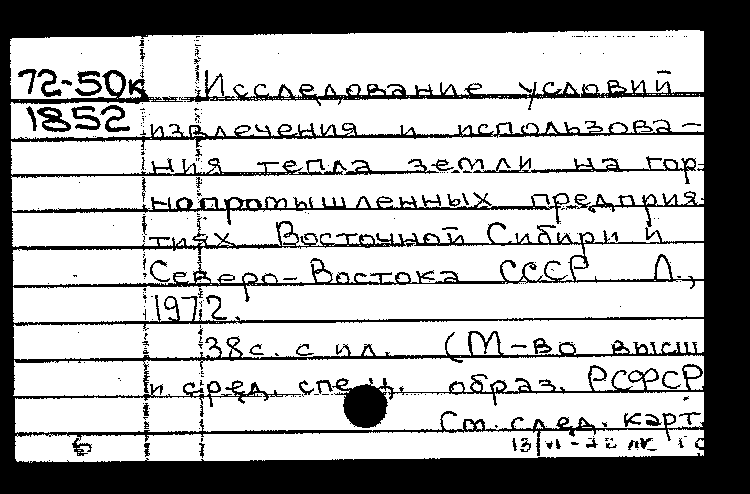 72-50к Исследование условий
1852 извлечения и использова-
ния тепла земли на гор-
нопромышленных предприя-
тиях Восточной Сибири и
Северо-Востока СССР. Л.,
1972.
38с. с ил. (М-во высш
и сред. спец. образ. РСФСР.
См. след. карт.
6